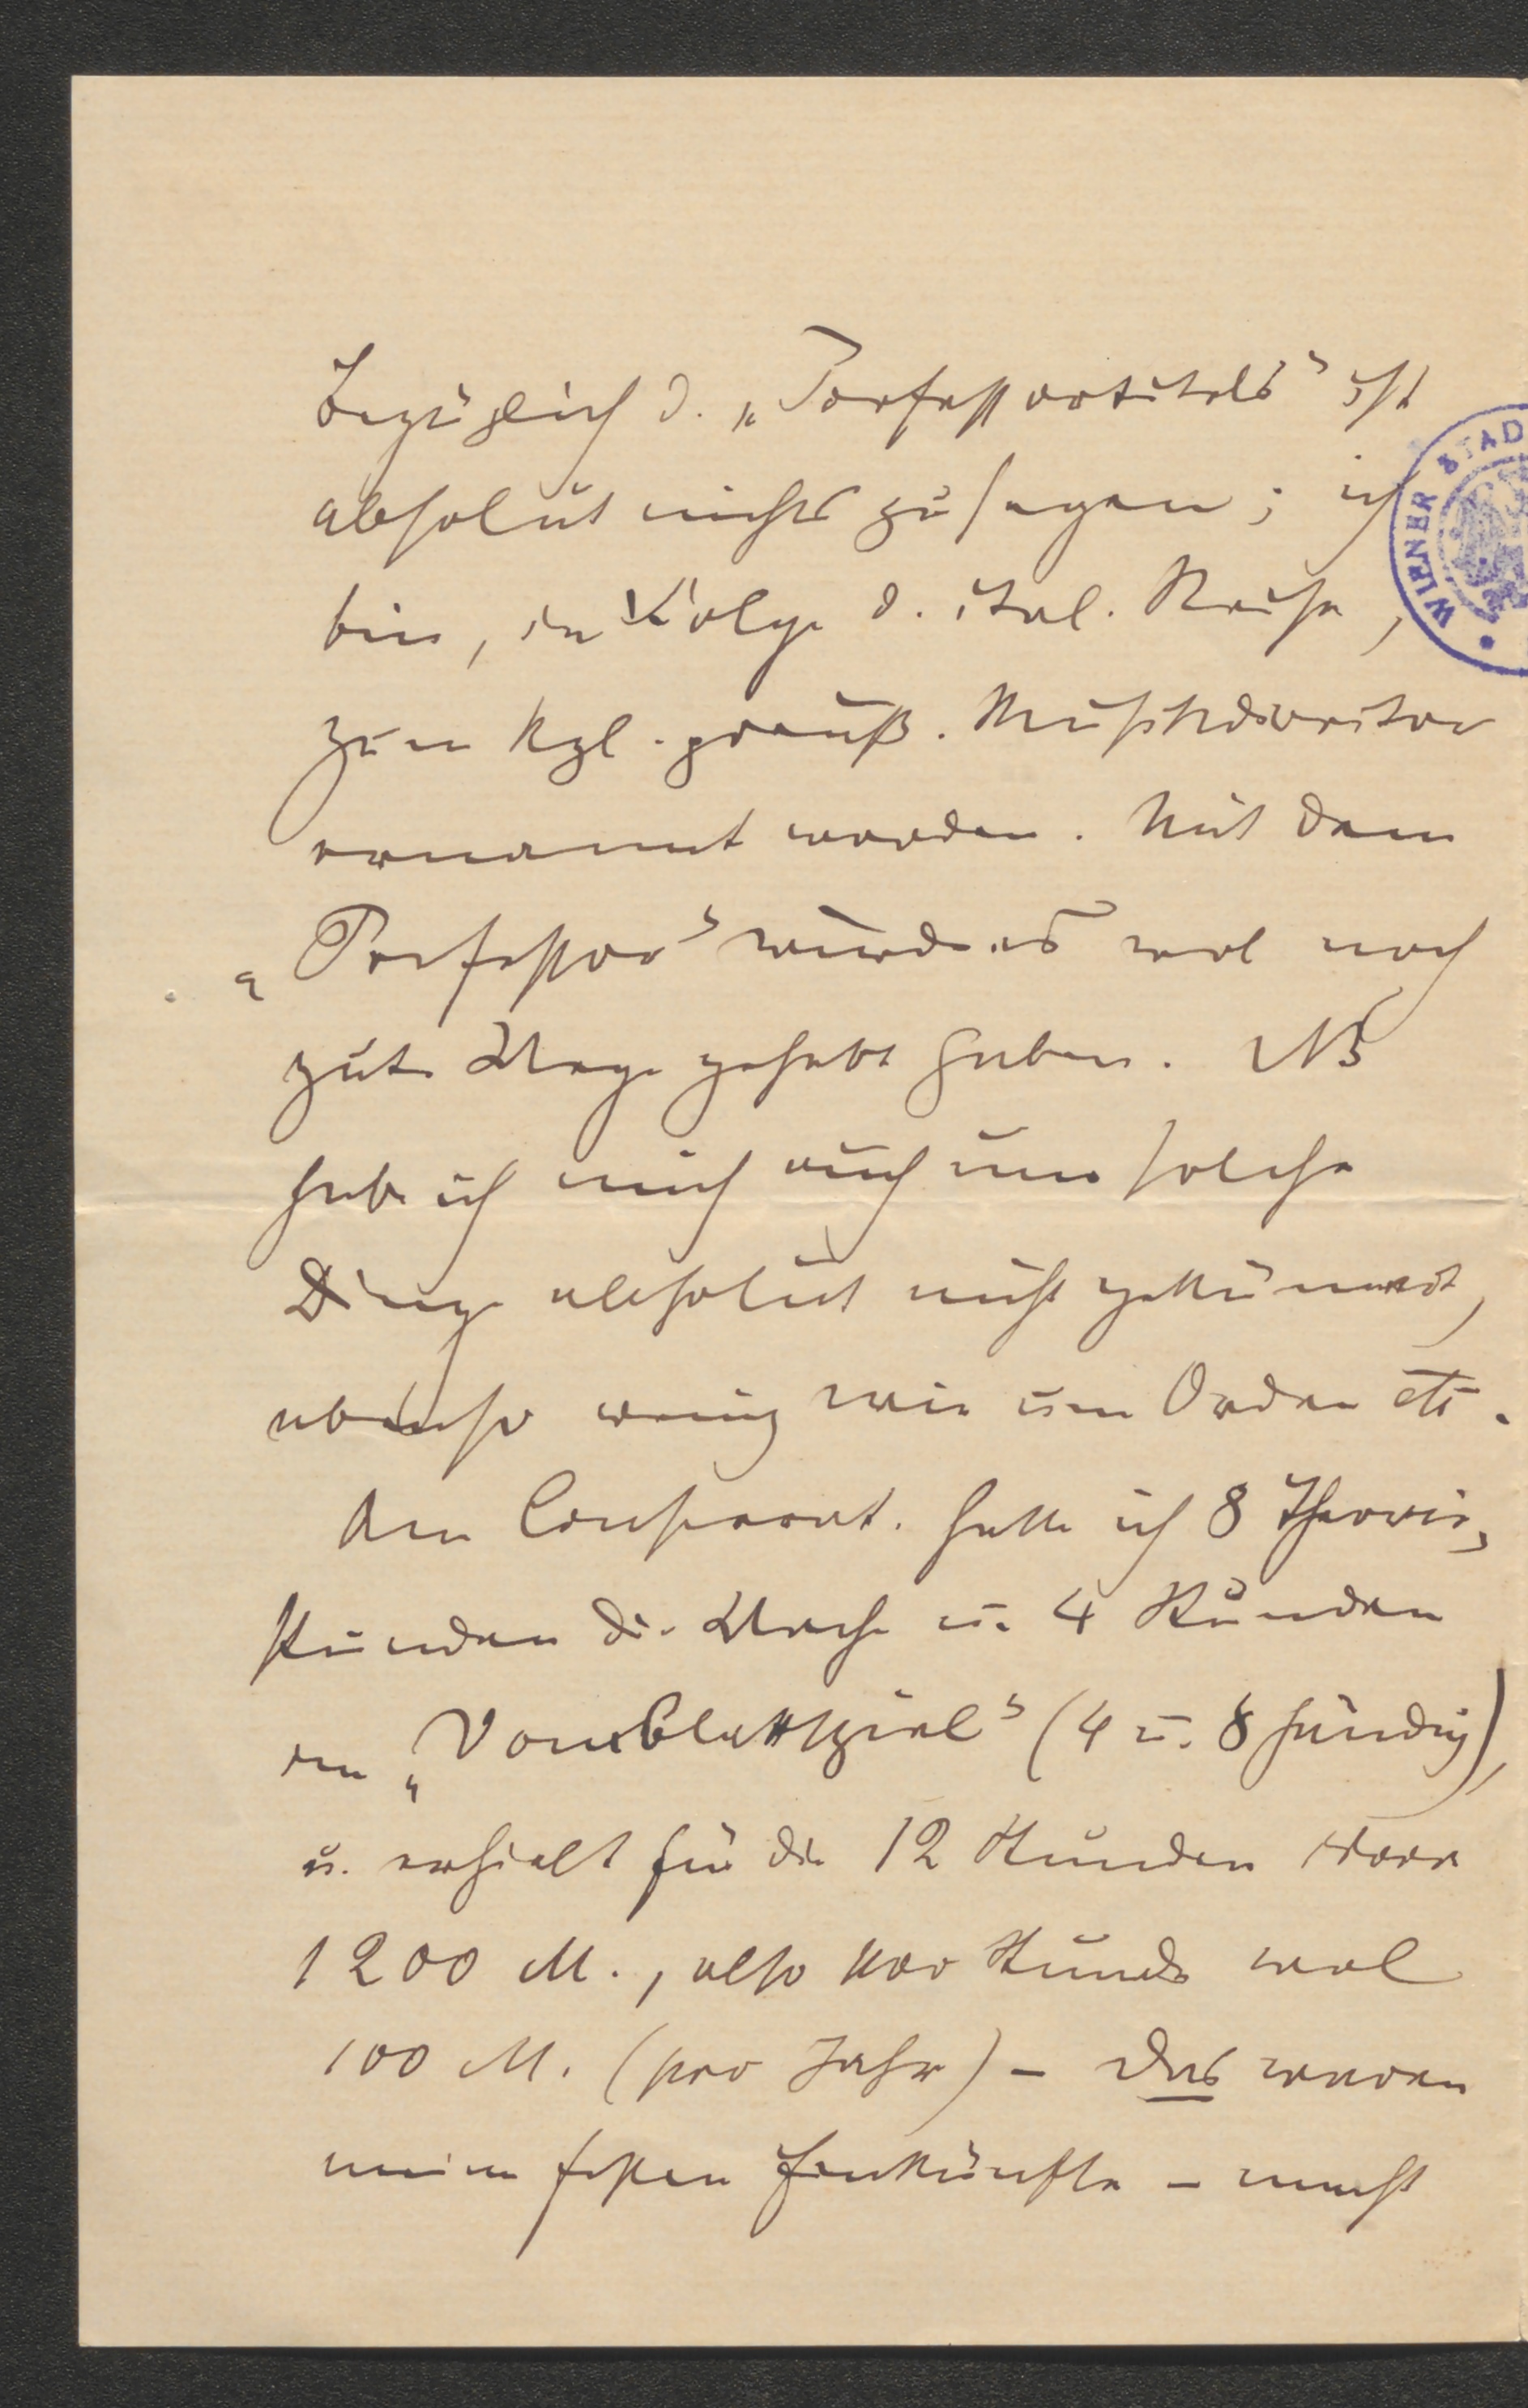 Bezüglich d. „Professortitels" ist
absolut nichts zu sagen; ich
bin, in Folge d. ital. Reise,
zum kgl. preuß. Musikdirector
ernannt worden. Mit dem
„Professor" würde es wol noch
gute Wege gehabt haben. NB
habe ich mich auch um solche
Dinge absolut nicht gekümmert,
ebenso wenig wie um Orden etc.
Am Conservat. hatte ich 8 Theorie-
stunden die Woche u. 4 Stunden
im „Vomblattspiel" (4 u. 8 händig),
u. erhielt für die 12 Stunden
1200 M., also pro Stunde wol
100 M. (pro Jahr) – das waren
meine festen Einkünfte – macht
WIENER STAD